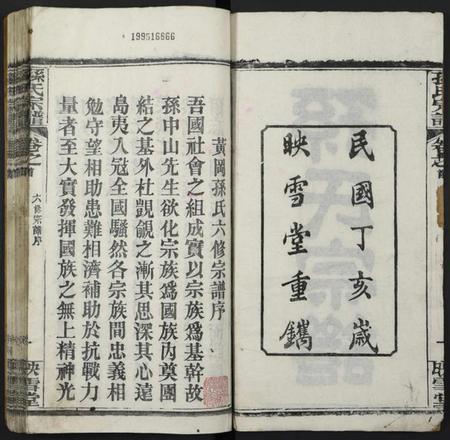 199516666
民國丁亥歲
映雪堂重鐫
黃岡孫氏六修宗譜序
吾國社會之組成實以宗族為基幹故
孫中山先生欲化宗族為國族內奠團
結之基外杜覬覦之漸其思深其心遠
島夷入寇全國騷然各宗族間忠義相
勉守望相助患難相濟補助於抗戰力
量者至大實發揮國族之無上精神光
孫氏宗譜
卷之首
六修宗譜序
一
映雪堂